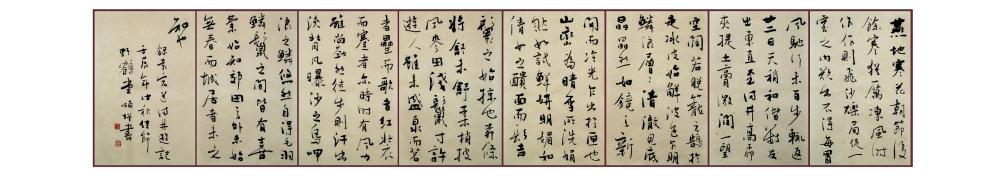 燕地寒花朝節後
餘寒猶厲凍風時
作作則飛沙礫局促一
室之內欲出不得每冒
風馳行未百步輒返
廿二日天稍和偕數友
出東直至滿井高柳
夾堤土膏微潤一望
空闊若脫籠之鵠於
是冰皮始解波色乍明
鱗浪層層清澈見底
晶晶然如鏡之新
開而冷光乍出於匣也
山巒為晴雪所洗娟
然如拭鮮妍明媚如
倩女之靧面而髻
鬟之始掠也柳條
將舒未舒柔梢披
風麥田淺鬣寸許
遊人雖未盛泉而茗
者罍而歌者紅裝
而蹇者亦時時有風力
雖尚勁然徒步則汗出
浹背凡曝沙之鳥呷
浪之鱗悠然自得毛羽
鱗鬣之間皆有喜
氣始知郊田之外未始
無春而城居者未之
知也
錄袁宏道滿井遊記
壬辰年中秋佳節
野鶴 書